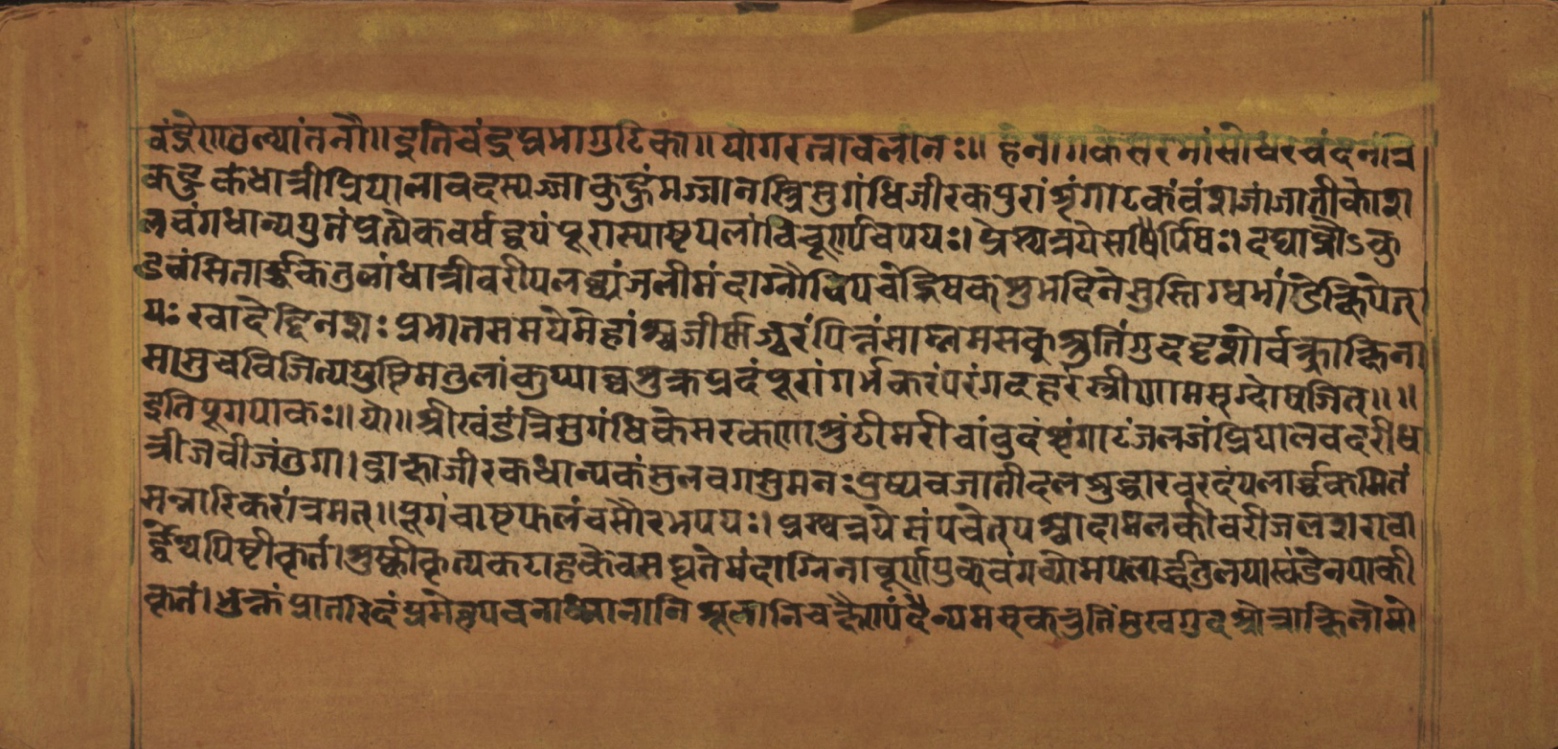 चंद्रेणतुल्यांतनौ॥ इतिचंद्रप्रभागुटिका॥ योगरत्नावलीतः॥ हेनागकेसरमांसोषरचंदनंत्रि
कटुकंधात्रीप्रियालावदस्यज्जाकुष्टंमज्जानस्त्रिसुगंधिजीरकपुरांशृंगाटकंवंशजांजातीकोश
लवंगधान्ययुतंप्रत्येकवर्षद्वयंपूगस्याष्टपलांविचूर्णपचिपयः। प्रस्थत्रयेसर्पिर्पिषः। दद्याज्रौऽकु
डवंसितार्द्धकतुलांधात्रीवरीपलद्व्यंजलीमंदाग्नौविपचेद्भिषक्शुभदिनेसुस्निग्धभांडेक्षिपेत्
यः खादेद्दिनशः प्रभातसमयेमेहांश्चजीर्णज्वरंपित्तंमाम्लमसक्स्रुतिंगुदद्दशोर्वक्त्राक्षिना
मासुचविजित्यपुष्टिमतुलांकुप्याच्चशुक्रप्रदंपूगंगर्भकरंपरंगदहरंस्त्रीणामसृग्दोषजित्॥ ॥
इतिपूगपाकः॥ यो॥ श्रीखंडंत्रिसुगंधिकेमरकणाशुंठीमरीचांबुदंशृंगाटंजलजंप्रियालवदरीध
त्रीजवीजंतुगा। द्राक्षाजीरकधान्यकंसुलवगसुमनःपुष्यचजातीदलशुद्धारवूरदंपलार्द्धकमितं
मन्नारिकरांत्रमत्॥ पूगंचाष्टफलंचसौरभपयः। प्रस्थत्रयेसंपचेत्पश्चादामलकीवरीजलशरावा
र्द्धेथपिष्टीकृतं। शुष्कीकृत्यकटाहकेवसघृतेमंदाग्निनाचूर्णापुक्यवंगव्योमपलार्द्धतुलयाखंडेनपाकी
कृतं। भुक्तंप्रातरिदंप्रमेहपवनाध्मानानिशूलानिचक्षैण्यंदैन्यमसृक्स्रुतिंमुखगुदश्रोत्राक्षिलोमो